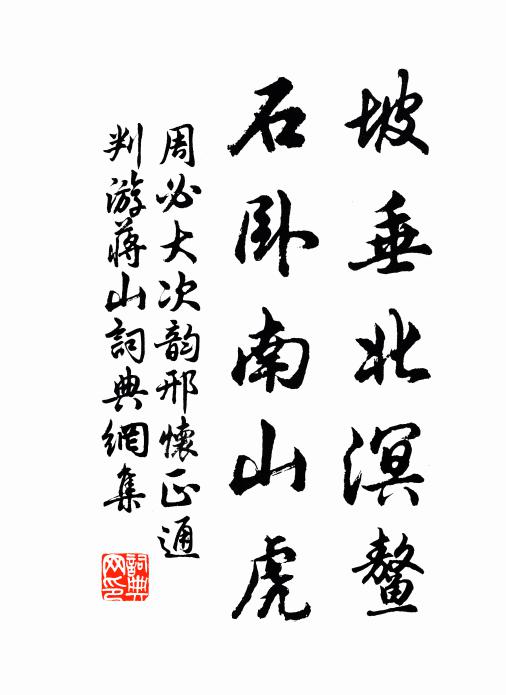 坡垂北溟鳌
石卧南山虎
周必大次韵邢懷正通
判游蔣山詞典網集
詞典
网印